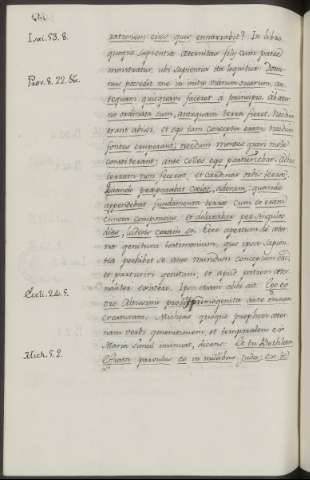 Isai. 53. 8.
rationem eius quis enarrabit? In libro
quoque sapientiæ æternitas filij cum patre
monstratur, ubi sapientia ita loquitur: Domi-
Prov. 8. 22. &c.
nus possedit me in initio viarum suarum, an-
tequam quicquam faceret a principio. Ab æter-
no ordinata sum, antequam terra fieret. Necdum
erant abissi, et ego iam concepta eram. Necdum
fontes eruperant, necdum montes gravi mole
constiterant: ante colles ego parturiebar. Adhuc
terram non fecerat, et cardines orbis terræ.
Quando præparabat Cœlos, aderam: quando
appendebat fundamenta terræ. Cum eo eram
cuncta componens, et delectabar per singulos
dies, ludens coram eo. Ecce apertum de æter-
na genitura testimonium, que ipsa sapien-
tia perhibet se ante mundum conceptam esse,
et parturiri genitam, et apud patrem æter-
naliter existere. Ipsa etiam alibi ait: Ego ex
Eccli. 24. 5.
ore Altissimi prodij primogenita ante omnem
creaturam. Michæas quoque propheta æter-
nam verbi generationem, et temporalem ex
Maria simul insinuat, dicens: Et tu Bethleem
Mich. 5. 2.
Ephrata parvulus es in millibus Juda: ex te